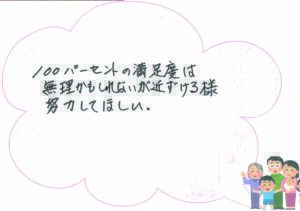 100パーセントの満足度は
無理かもしれないが近ずける様
努力してほしい。